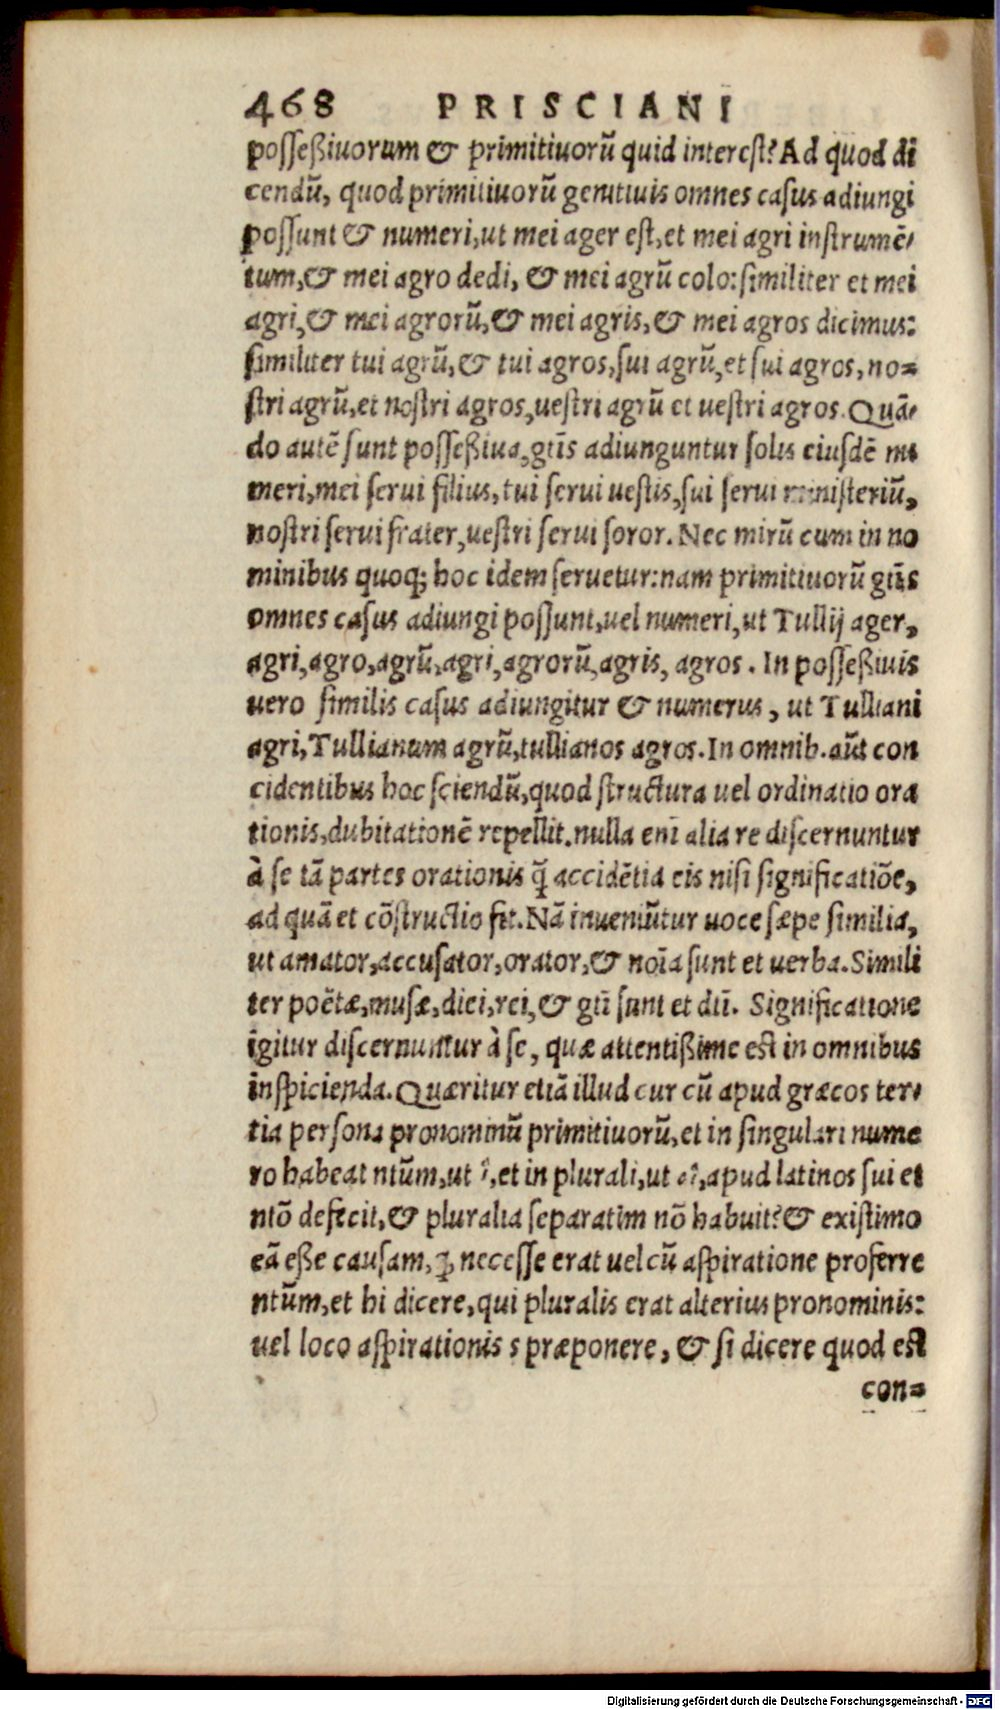 468 PRISCIANI
posseßiuorum & primitiuorũ quid interest? Ad quod di
cendũ, quod primitiuorũ genitiuis omnes casus adiungi
possunt & numeri, ut mei ager est, et mei agri instrumẽ-
tum, & mei agro dedi, & mei agrũ colo: similiter et mei
agri, & mei agrorũ, & mei agris, & mei agros dicimus:
similiter tui agrũ, & tui agros, sui agrũ, et sui agros, no=
stri agrũ, et nostri agros, uestri agrũ et uestri agros. Quã-
do autẽ sunt posseßiua, gtĩs adiunguntur solis eiusdẽ nu
meri, mei serui filius, tui serui uestis, sui serui ministeriũ,
nostri serui frater, uestri serui soror. Nec mirũ cum in no
minibus quoq; hoc idem seruetur: nam primitiuorũ gtĩs
omnes casus adiungi possunt, uel numeri, ut Tullij ager,
agri, agro, agrũ, agri, agrorũ, agris, agros. In posseßiuis
uero similis casus adiungitur & numerus, ut Tulliani
agri, Tullianum agrũ, tullianos agros. In omnib. aũt con
cidentibus hoc sciendũ, quod structura uel ordinatio ora
tionis, dubitationẽ repellit. nulla enĩ alia re discernuntur
à se tã partes orationis q̃ accidẽtia eis nisi significatiõe,
ad quã et cõstructio fit. Nã inueniũtur uoce sæpe similia,
ut amator, accusator, orator, & noĩa sunt et uerba. Simili
ter poẽtæ, musæ, diei, rei, & gtĩ sunt et dtĩ. Significatione
igitur discernuntur à se, quæ attentißime est in omnibus
inspicienda. Quæritur etiã illud cur cũ apud græcos ter-
tia persona pronominũ primitiuorũ, et in singulari nume
ro habeat ntũm, ut ἵ, et in plurali, ut , apud latinos sui et
ntõ defecit, & pluralia separatim nõ habuit? & existimo
eã eße causam, ꝙ necesse erat uel cũ aspiratione proferre
ntũm, et hi dicere, qui pluralis erat alterius pronominis:
uel loco aspirationis s præponere, & si dicere quod est
con=
Digitalisierung gefördert durch die Deutsche Forschungsgemeinschaft - DFG